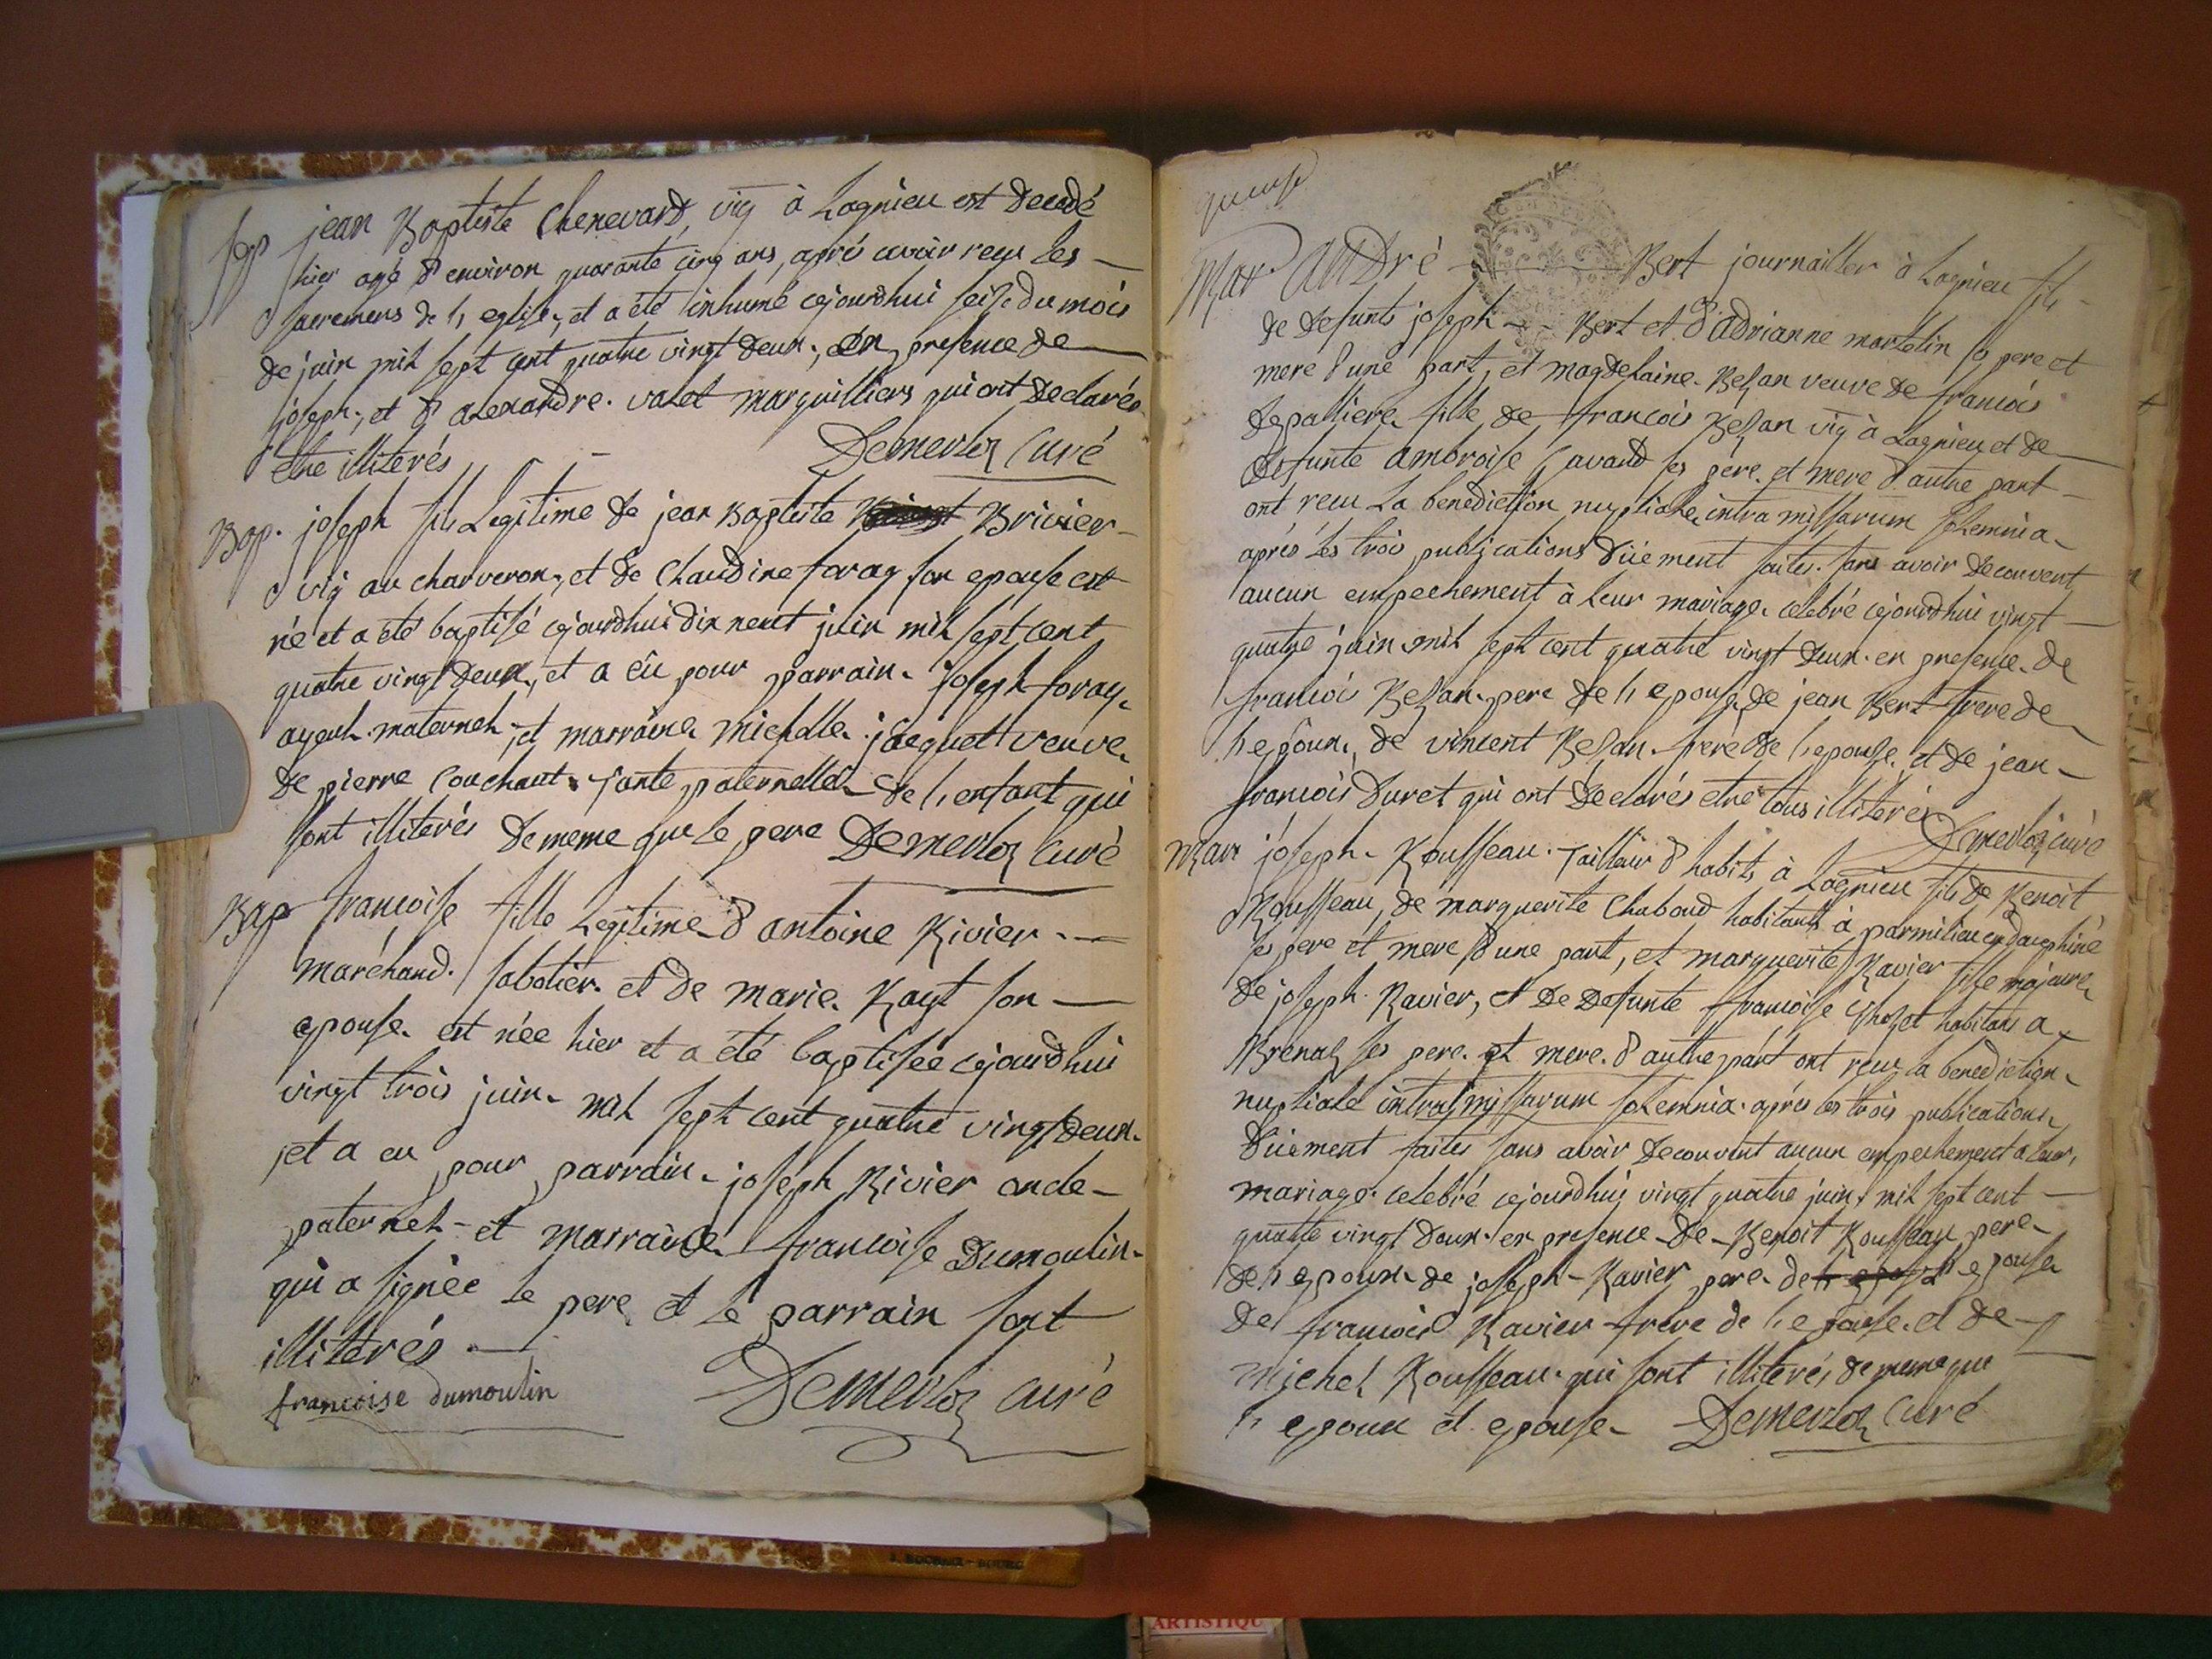 Sep jean Baptiste Chenevard, vig à Lagnieu est decedé
hier agé d'environ quarante cinq ans, apré avoir reçu les
sacremens de l'eglise, et a été inhumé cejourdhui seise du mois
de juin mil sept cent quatre vingt deux, en presence de
joseph, et d'alexandre valet marguilliers qui ont declarés
etre illiterés
Demerloz Curé
Bap. joseph fils Legitime de jean Baptiste Brivier
vig au charveron, et de Claudine foray son epouse est
né et a été baptisé cejourdhui dix neuf juin mil sept cent
quatre vingt deux, et a eü pour parrain joseph foray
ayeul maternel, et marraine michelle jacquet veuve
de pierre Couchaut tante paternelle de l'enfant qui
sont illiterés de meme que le pere Demerloz Curé
Bap francoise fille Legitime d'antoine Rivier
marchand sabotier et de marie Rayt son
epouse est née hier et a été baptisée cejourdhui
vingt trois juin mil sept cent quatre vingt deux
et a eu pour parrain joseph Rivier oncle
paternel et marraine francoise Dumoulin
qui a signée le pere et le parrain sont
illiterés
francoise dumoulin Demerloz Curé
Mar André Bert journallier à Lagnieu fils
de defunts joseph Bert et d'adrianne martelin ses pere et
mere d'une part, et magdelaine Besan veuve de francois
depalliere fille de francois Besan vig à Lagnieu et de
defunte ambroise Savand ses pere et mere d'autre part
ont recu La benediction nuptiale intra missarum solemnia
aprés les trois publications düement faites sans avoir decouvert
aucun empechement à leur mariage celebré cejourdhui vingt
quatre juin mil sept cent quatre vingt deux en presence de
francois Besan pere de l'epouse, de jean Bert frere de
l'epoux, de vincent Besan frere de l'epouse et de jean
francois Duret qui ont declarés etre tous illiterés
Demerloz curé
Mar joseph Rousseau Tailleur d'habits à Lagnieu fils de Benoit
Rousseau, de marguerite Chaboud habitants à parmilieu en dauphiné
ses pere et mere d'une part, et marguerite Ravier fille majeure
de joseph Ravier, et de Defunte francoise habitans a
Brenaz ses pere et mere d'autre part ont recu la benediction
nuptiale intra missarum solemnia aprés les trois publications
düement faites sans avoir decouvert aucun empechement a leur
mariage celebré cejourdhui vingt quatre juin mil sept cent
quatre vingt deux en presence de Benoit Rousseau pere
de l'epoux de joseph Ravier pere de l'epouse
de francois Ravier frere de l'epouse et de
Michel Rousseau qui sont illiterés de meme que
l'epoux et epouse Demerloz Curé
J. BOURG
ARTISTIQU